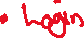 • Login